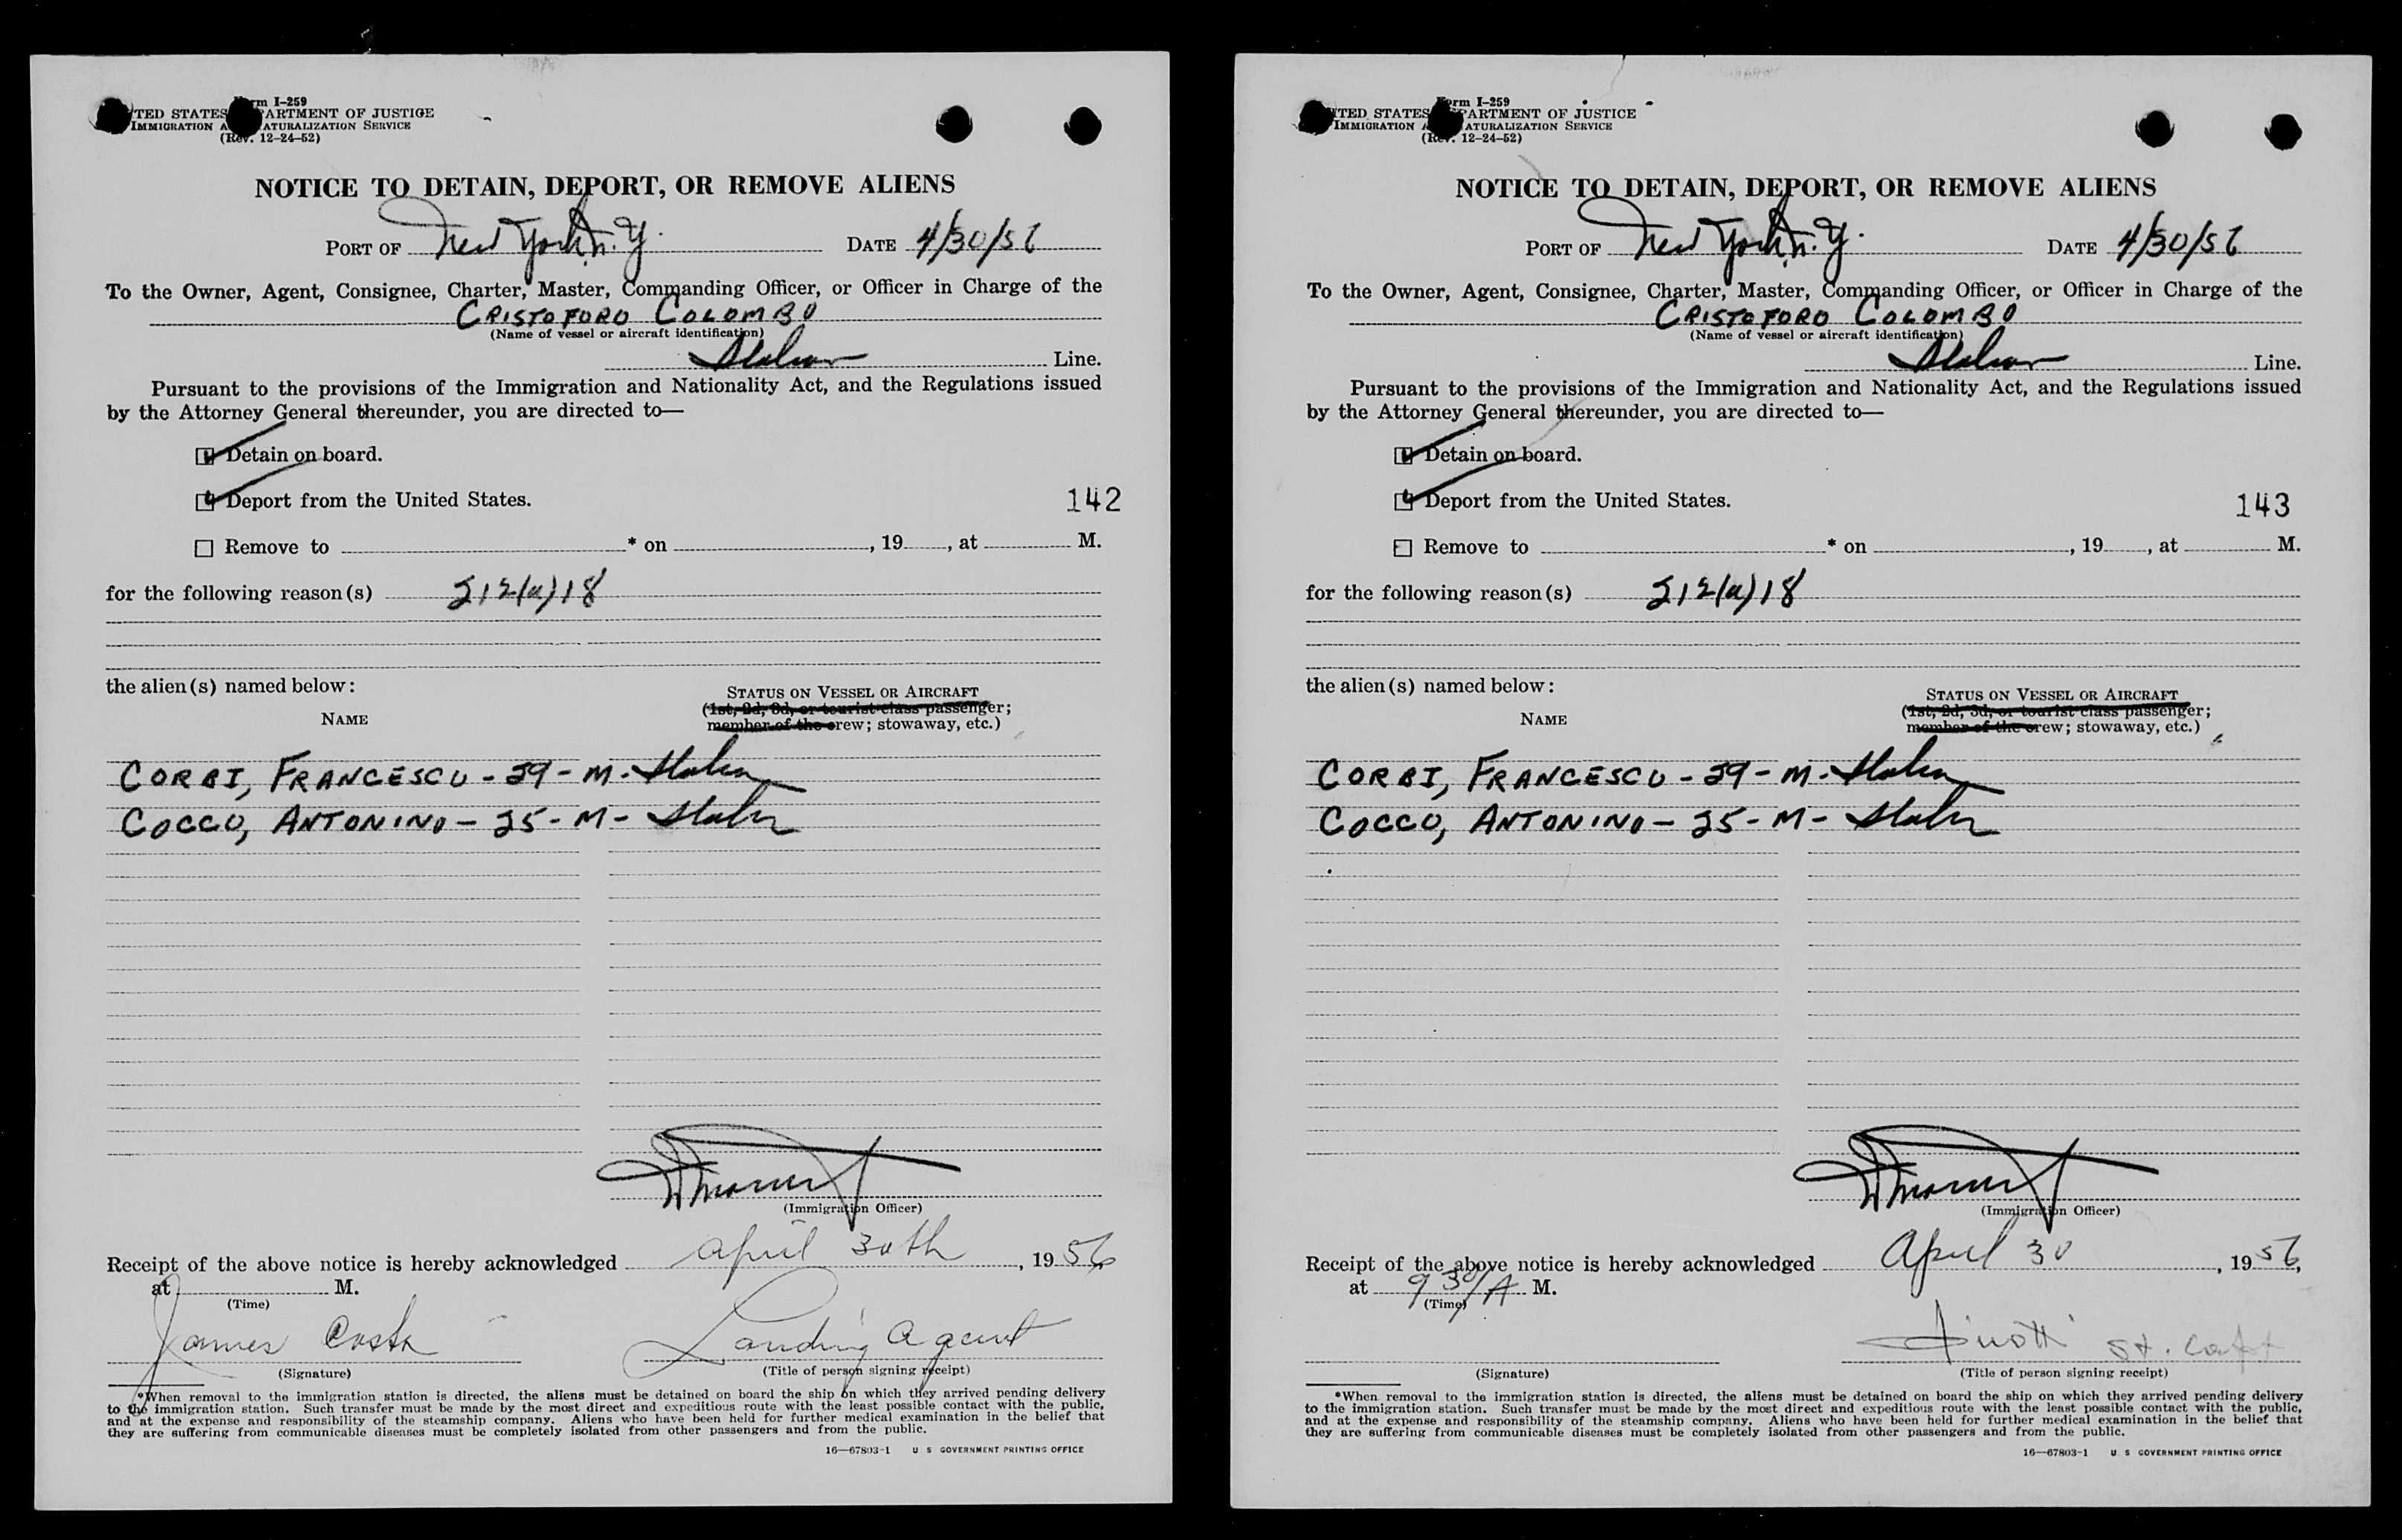 Form I-259
UNITED STATES DEPARTMENT OF JUSTICE
IMMIGRATION AND NATURALIZATION SERVICE
(Rev. 12-24-52)
NOTICE TO DETAIN, DEPORT, OR REMOVE ALIENS
PORT OF New York N.Y. DATE 4/30/56
To the Owner, Agent, Consignee, Charter, Master, Commanding Officer, or Officer in Charge of the
CRISTOFORO COLOMBO
(Name of vessel or aircraft identification)
Italian Line.
Pursuant to the provisions of the Immigration and Nationality Act, and the Regulations issued
by the Attorney General thereunder, you are directed to—
Detain on board.
Deport from the United States.
142
Remove to * on , 19 , at M.
for the following reason(s) 212(a)18
the alien(s) named below:
NAME
STATUS ON VESSEL OR AIRCRAFT
(1st, 2d, 3d, or tourist class passenger;
member of the crew; stowaway, etc.)
CORBI, FRANCESCO - 29 - M - Italian
COCCO, ANTONINO - 25 - M - Italian
(Immigration Officer)
Receipt of the above notice is hereby acknowledged April 30th, 1956,
at M.
(Time)
James Costa Landing Agent
(Signature) (Title of person signing receipt)
*When removal to the immigration station is directed, the aliens must be detained on board the ship on which they arrived pending delivery
to the immigration station. Such transfer must be made by the most direct and expeditious route with the least possible contact with the public,
and at the expense and responsibility of the steamship company. Aliens who have been held for further medical examination in the belief that
they are suffering from communicable diseases must be completely isolated from other passengers and from the public.
16—67803-1 U S GOVERNMENT PRINTING OFFICE
Form I-259
UNITED STATES DEPARTMENT OF JUSTICE
IMMIGRATION AND NATURALIZATION SERVICE
(Rev. 12-24-52)
NOTICE TO DETAIN, DEPORT, OR REMOVE ALIENS
PORT OF New York N.Y. DATE 4/30/56
To the Owner, Agent, Consignee, Charter, Master, Commanding Officer, or Officer in Charge of the
CRISTOFORO COLOMBO
(Name of vessel or aircraft identification)
Italian Line.
Pursuant to the provisions of the Immigration and Nationality Act, and the Regulations issued
by the Attorney General thereunder, you are directed to—
Detain on board.
Deport from the United States.
143
Remove to * on , 19 , at M.
for the following reason(s) 212(a)18
the alien(s) named below:
NAME
STATUS ON VESSEL OR AIRCRAFT
(1st, 2d, 3d, or tourist class passenger;
member of the crew; stowaway, etc.)
CORBI, FRANCESCO - 29 - M - Italian
COCCO, ANTONINO - 25 - M - Italian
(Immigration Officer)
Receipt of the above notice is hereby acknowledged April 30, 1956,
at 9 30/A M.
(Time)
(Signature) (Title of person signing receipt)
*When removal to the immigration station is directed, the aliens must be detained on board the ship on which they arrived pending delivery
to the immigration station. Such transfer must be made by the most direct and expeditious route with the least possible contact with the public,
and at the expense and responsibility of the steamship company. Aliens who have been held for further medical examination in the belief that
they are suffering from communicable diseases must be completely isolated from other passengers and from the public.
16—67803-1 U S GOVERNMENT PRINTING OFFICE